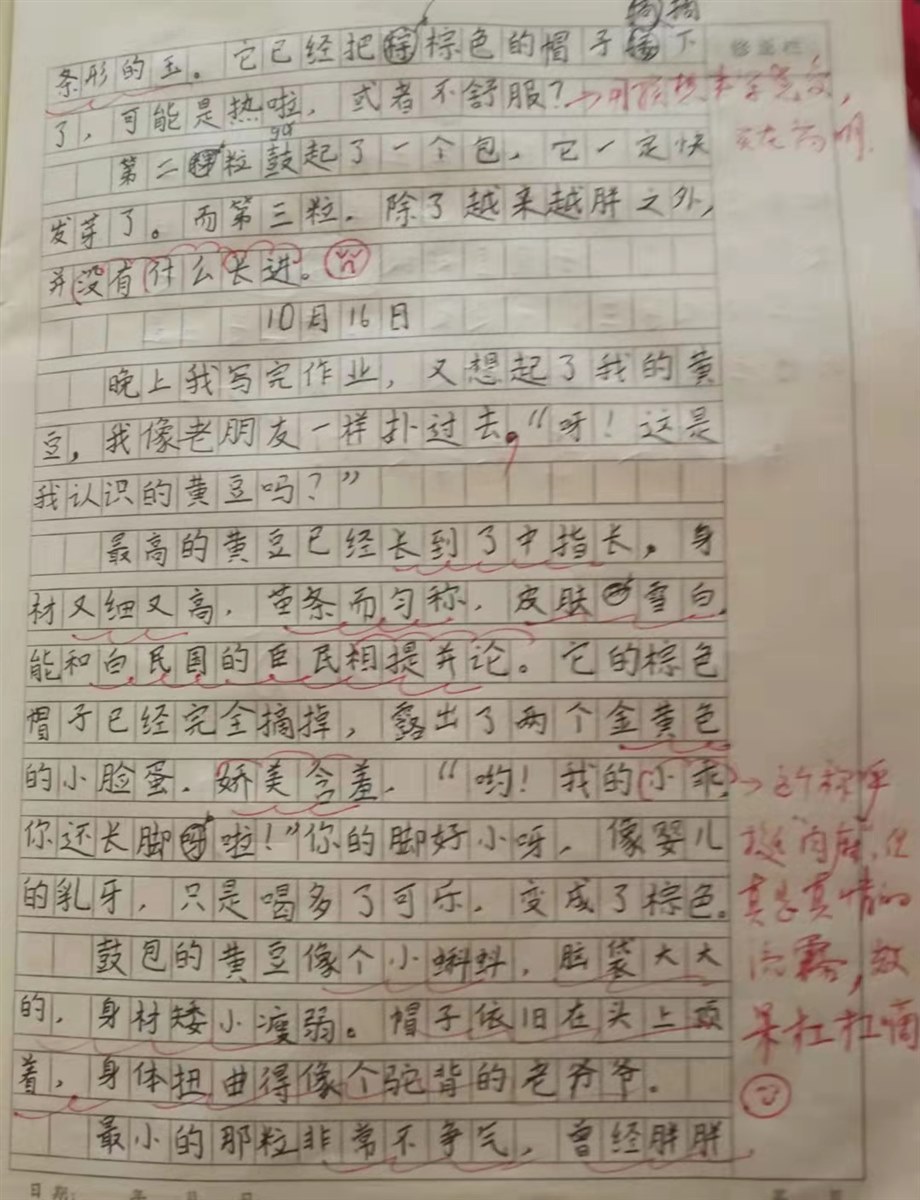 摘摘
条形的玉。它已经把棕色的帽子下
了，可能是热啦，或者不舒服？
gǔ
第二粒鼓起了一个包，它一定快
发芽了。而第三粒，除了越来越胖之外，
并没有什么长进。
10月16日
晚上我写完作业，又想起了我的黄
豆，我像老朋友一样扑过去，“呀！这是
我认识的黄豆吗？”
最高的黄豆已经长到了中指长，身
材又细又高，苗条而匀称，皮肤雪白，
能和白民国的巨民相提并论。它的棕色
帽子已经完全摘掉，露出了两个金黄色
的小脸蛋，娇美含羞，“哟！我的小乖，
→这个称呼
你还长脚啦！”你的脚好小呀，像婴儿
挺肉麻，但
的乳牙，只是喝多了可乐，变成了棕色。
真是真情的
鼓包的黄豆像个小蝌蚪，脑袋大大
流露，效
的，身材矮小瘦弱。帽子依旧在头上顶
果杠杠滴
着，身体扭曲得像个驼背的老爷爷。
最小的那粒非常不争气，曾经胖胖
日期： 年 月 日